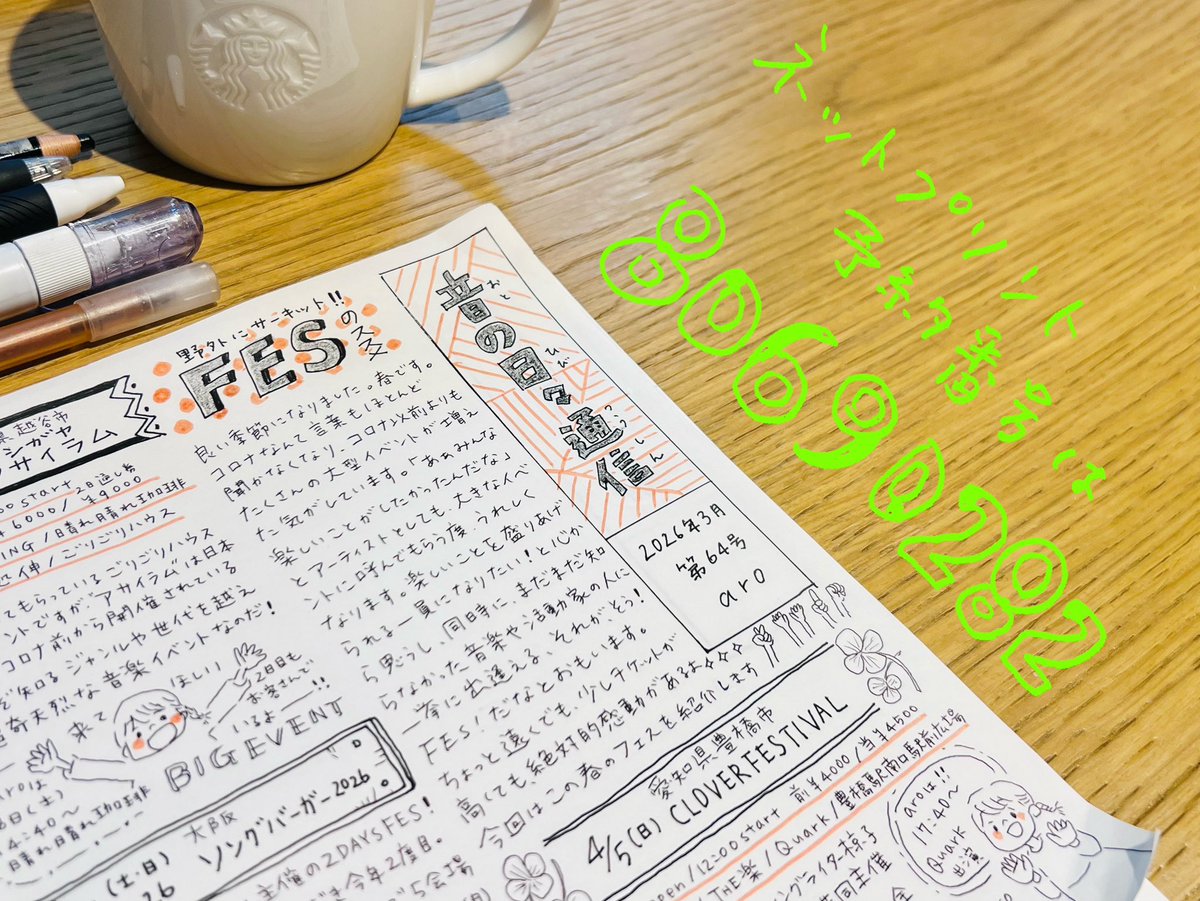 ネットプリント
予約番号は
80690282
音の日々通信
おと ひび つうしん
2026年3月
第64号
aro
野外にサーキット!!
FESのススメ
良い季節になりました。春です。
コロナなんて言葉もほとんど
聞かなくなり、コロナ以前よりも
たくさんの大型イベントが増え
た気がしています。「ああみんな
楽しいことがしたかったんだな」
とアーティストとしても、大きなイベ
ントに呼んでもらう度、うれしく
なります。楽しいことを盛りあげ
られる一員になりたい!と心か
ら思うし、同時に、まだまだ知
らなかった音楽や活動家の人に
一挙に出逢える、それがそう!
FES!だなとおもいます。
ちょっと遠くても、少しチケットが
高くても、絶対的感動があるよ☆☆☆
今回はこの春のフェスを紹介します
愛知県豊橋市
4/5(日) CLOVERFESTIVAL
open/12:00start 前¥4000/当¥4500
THE楽/Quark/豊橋駅南口駅前広場
ングライター椋子
共同主催
aroは!!
17:40〜
Quark
出演
県越谷市
シガヤ
サイラム
00start 2日通し券
6000/¥9000
ING/晴れ晴れ珈琲
伸/ごりごりハウス
てもらっているごりごりハウス
ントですが、アサイラムは日本
コロナ前から開催されている
ぞ知るジャンルや世代を越え
奇天烈な音楽イベントなのだ!
来て
ほしい
2日目も
お客さんで
いるよー!!
BIG EVENT
aroは
8日(土)
14:40〜
晴れ晴れ珈琲
大阪
(土・日) ソングバーガー2026
主催の2DAYSFES!
は今年2度目。
5会場